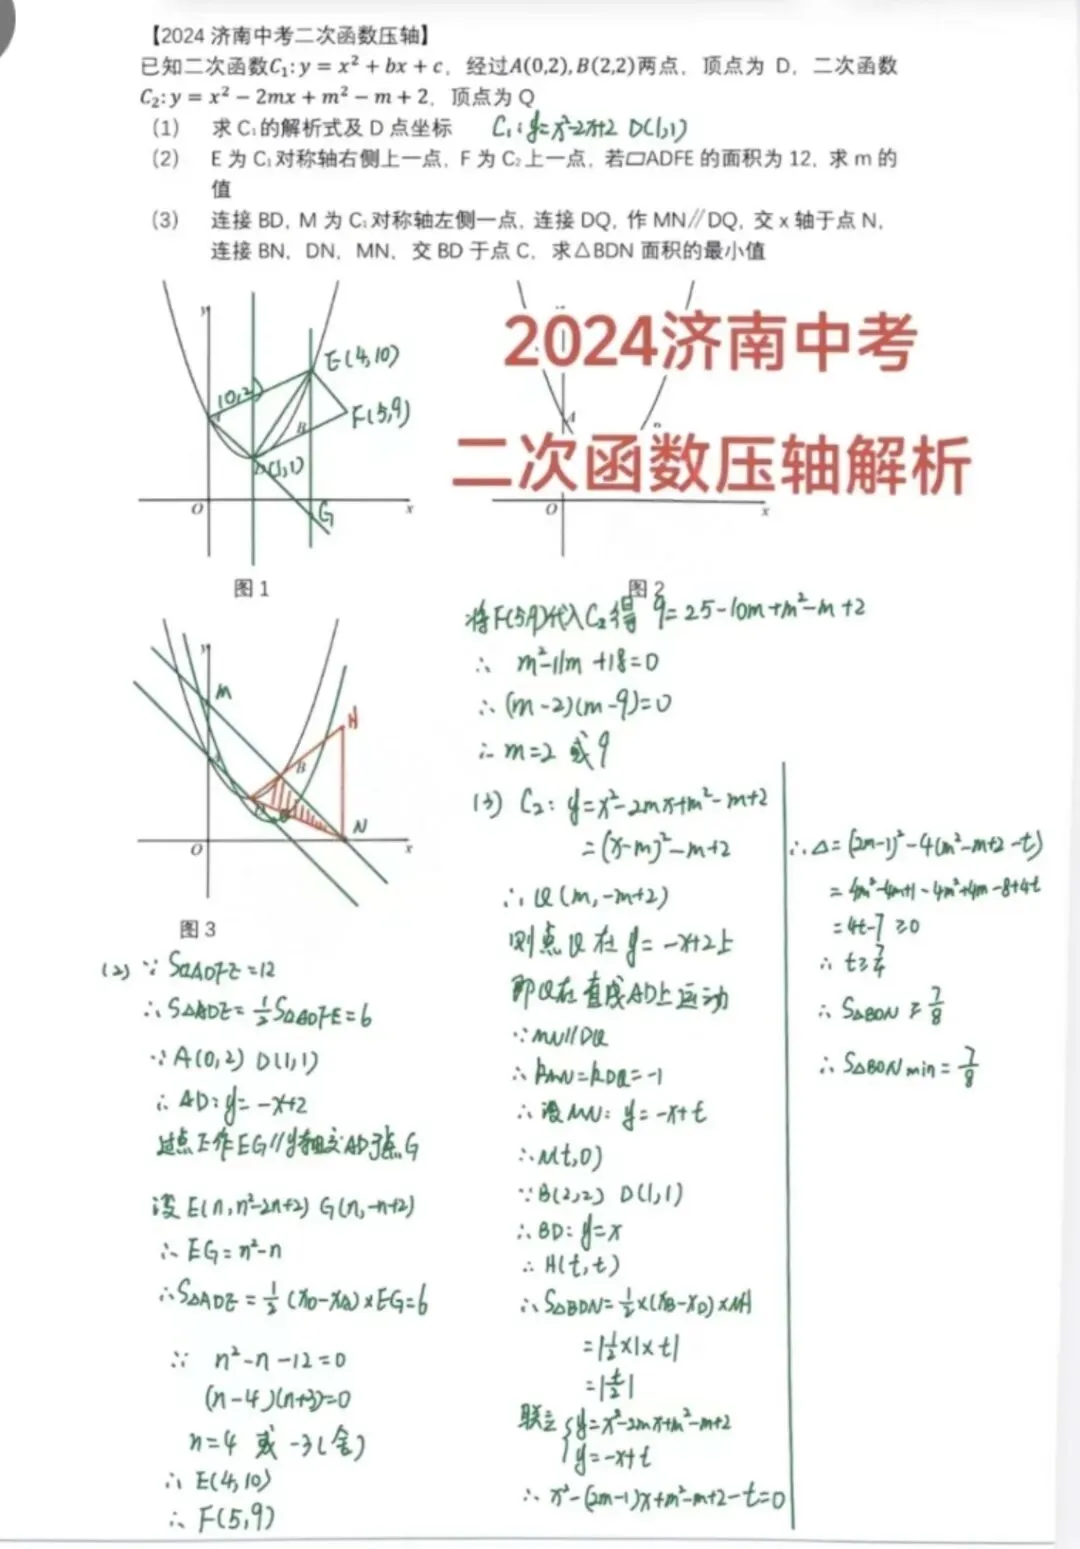 【2024 济南中考二次函数压轴】
已知二次函数C₁: y = x² + bx + c，经过A(0,2), B(2,2)两点，顶点为 D，二次函数
C₂: y = x² − 2mx + m² − m + 2，顶点为 Q
(1) 求 C₁的解析式及 D 点坐标 C₁: y=x²-2x+2 D(1,1)
(2) E 为 C₁对称轴右侧上一点，F 为 C₂上一点，若▱ADFE 的面积为 12，求 m 的
值
(3) 连接 BD，M 为 C₁对称轴左侧一点，连接 DQ，作 MN∥DQ，交 x 轴于点 N，
连接 BN，DN，MN，交 BD 于点 C，求△BDN 面积的最小值
2024济南中考
二次函数压轴解析
y
E(4,10)
(0,2)
F(5,9)
B
D(1,1)
G
O
x
图 1
A
O
x
图 2
y
M
H
A
B
D
Q
N
O
x
图 3
(2) ∵ S▱ADFE=12
∴S△ADE=½S▱ADFE=6
∵A(0,2) D(1,1)
∴AD: y=-x+2
过点E作EG//y轴交AD于点G
设E(n,n²-2n+2) G(n,-n+2)
∴EG=n²-n
∴S△ADE=½(xD-xA)×EG=6
∵ n²-n-12=0
(n-4)(n+3)=0
n=4 或 -3(舍)
∴E(4,10)
∴F(5,9)
将F(5,9)代入C₂得 9=25-10m+m²-m+2
∴ m²-11m+18=0
∴(m-2)(m-9)=0
∴m=2 或9
(3) C₂: y=x²-2mx+m²-m+2
=(x-m)²-m+2
∴Q(m,-m+2)
则点Q在y=-x+2上
即Q在直线AD上运动
∵MN//DQ
∴kMN=kDQ=-1
∴设MN: y=-x+t
∴N(t,0)
∵B(2,2) D(1,1)
∴BD: y=x
∴H(t,t)
∴S△BDN=½×(xB-xD)×NH
=|½×1×t|
=|t/2|
联立{y=x²-2mx+m²-m+2
y=-x+t
∴x²-(2m-1)x+m²-m+2-t=0
∴△=(2m-1)²-4(m²-m+2-t)
=4m²-4m+1-4m²+4m-8+4t
=4t-7≥0
∴t≥7/4
∴S△BDN≥7/8
∴S△BDNmin=7/8